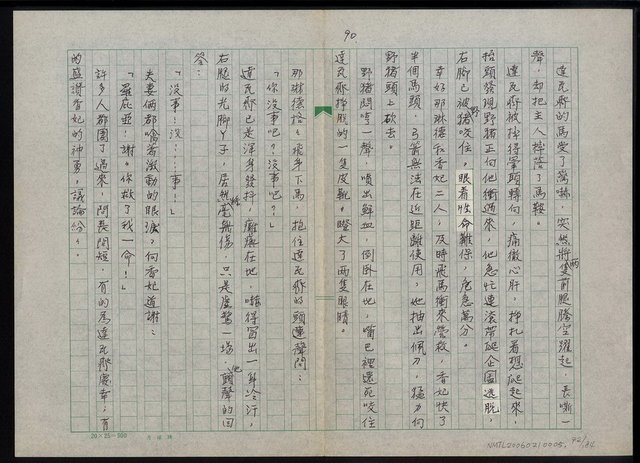 90
達瓦齊的馬受了驚嚇,突然將兩隻前腿騰空躍起,長嘶一
聲,却把主人摔落了馬鞍。
達瓦齊被摔得暈頭轉向,痛徹心肝,掙扎着想爬起來,
抬頭發現野豬正向他衝過來,他急忙連滾帶爬企圖逃脫,
右脚已被野豬咬住。眼看性命難保,危急萬分。
幸好那琳德和香妃二人,及時飛馬衝來營救,香妃快了
半個馬頭,弓箭無法在近距離使用,她抽出佩刀,猛力向
野豬頭上砍去。
野豬悶哼一聲,噴出鮮血,倒臥在地,嘴巴裡還死咬住
達瓦齊掙脫的一隻皮靴。瞪大了兩隻眼睛。
那琳德格格飛身下馬,抱住達瓦齊的頭連聲問:
「你沒事吧?沒事吧?」
達瓦齊已是渾身發抖,癱瘓在地,嚇得冒出一身冷汗,
右腿的光脚丫子,居然毫無傷,只是虛驚一場,他顫聲的回
答:
「沒事!沒…事!」
夫妻倆都噙着激動的眼淚,向香妃道謝:
「羅庇亞!謝謝你救了我一命!」
許多人都圍了過來,問長問短,有的為達瓦齊慶幸,有
的盛讚香妃的神勇,議論紛紛。
20×25=500
NMTL20060210005, 92/184